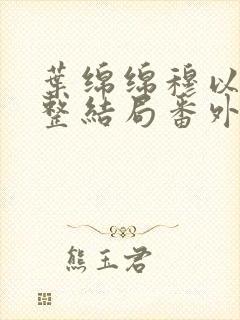 葉綿綿穆以
整結局番外
熊玉君